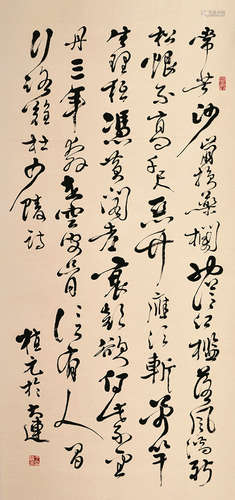 常苦沙崩损药栏也从江槛落风湍新
松恨不高千尺恶竹应须斩万竿
生理秖凭黄阁老衰颜欲付紫金
丹三年奔走空皮骨信有人间
行路难杜少陵诗
植元於大连